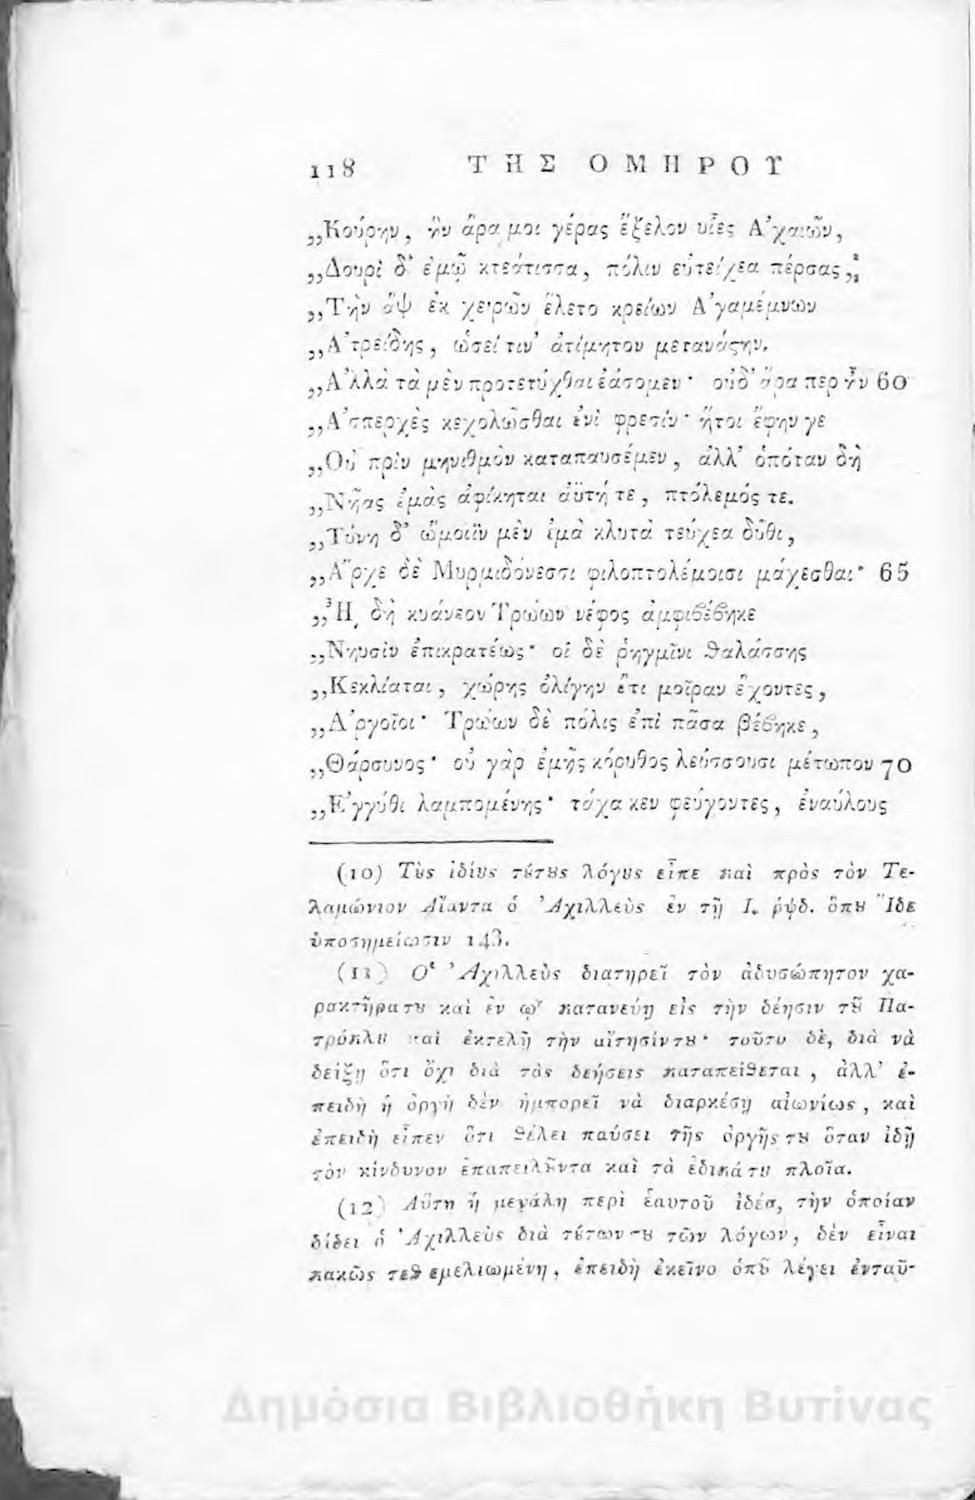 118 ΤΗΣ ΟΜΗΡΟΥ
„Κούρην, ἣν ἄρα μοι γέρας ἔξελον υἷες Ἀχαιῶν,
„Δουρὶ δ' ἐμῷ κτεάτισσα, πόλιν εὐτείχεα πέρσας,
„Τὴν ἂψ ἐκ χειρῶν ἕλετο κρείων Ἀγαμέμνων
„Ἀτρείδης, ὡσεί τιν' ἀτίμητον μετανάςην.
„Ἀλλὰ τὰ μὲν προτετύχθαι ἐάσομεν· οὐδ' ἄρα περ ἦν 60
„Ἀσπερχὲς κεχολῶσθαι ἐνὶ φρεσίν· ἤτοι ἔφην γε
„Οὐ πρὶν μηνιθμὸν καταπαυσέμεν, ἀλλ' ὁπόταν δὴ
„Νῆας ἐμὰς ἀφίκηται ἀϋτή τε, πτόλεμός τε.
„Τύνη δ' ὤμοιϊν μὲν ἐμὰ κλυτὰ τεύχεα δῦθι,
„Ἄρχε δὲ Μυρμιδόνεσσι φιλοπτολέμοισι μάχεσθαι· 65
„Ἦ δὴ κυάνεον Τρώων νέφος ἀμφιβέβηκε
„Νηυσὶν ἐπικρατέως· οἱ δὲ ῥηγμῖνι θαλάσσης
„Κεκλίαται, χώρης ὀλίγην ἔτι μοῖραν ἔχοντες,
„Ἀργοῖοι· Τρώων δὲ πόλις ἐπὶ πᾶσα βέβηκε,
„Θάρσυνος· οὐ γὰρ ἐμῆς κόρυθος λεύσσουσι μέτωπον 70
„Ἐγγύθι λαμπομένης· τάχα κεν φεύγοντες, ἐναύλους
(10) Τȣς ἰδίȣς τȣ́τȣς λόγȣς εἶπε καὶ πρὸς τὸν Τε-
λαμώνιον Αἴαντα ὁ Ἀχιλλεὺς ἐν τῇ Ι. ῥψδ. ὅπȣ Ἴδε
ὑποσημείωσιν 143.
(11) Ὁ Ἀχιλλεὺς διατηρεῖ τὸν ἀδυσώπητον χα-
ρακτῆρα τȣ καὶ ἐν ᾧ κατανεύῃ εἰς τὴν δέησιν τȣ͂ Πα-
τρόκλȣ καὶ ἐκτελῇ τὴν αἴτησίν τȣ· τοῦτο δὲ, διὰ νὰ
δείξῃ ὅτι ὄχι διὰ τὰς δεήσεις καταπείθεται, ἀλλ' ἐ-
πειδὴ ἡ ὀργὴ δὲν ἠμπορεῖ νὰ διαρκέσῃ αἰωνίως, καὶ
ἐπειδὴ εἶπεν ὅτι θέλει παύσει τῆς ὀργῆς τȣ ὅταν ἰδῇ
τὸν κίνδυνον ἐπαπειλȣ͂ντα καὶ τὰ ἐδικά τȣ πλοῖα.
(12) Αὕτη ἡ μεγάλη περὶ ἑαυτοῦ ἰδέα, τὴν ὁποίαν
δίδει ὁ Ἀχιλλεὺς διὰ τȣ́των τȣ τῶν λόγων, δὲν εἶναι
κακῶς τεθεμελιωμένη, ἐπειδὴ ἐκεῖνο ὁπȣ͂ λέγει ἐνταῦ-
Δημόσια Βιβλιοθήκη Βυτίνας